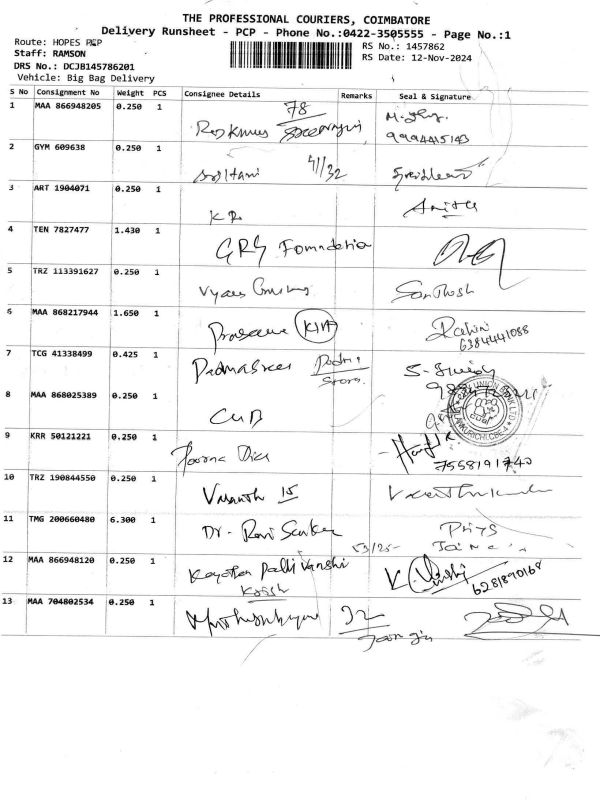 THE PROFESSIONAL COURIERS, COIMBATORE
Delivery Runsheet - PCP - Phone No.:0422-3505555 - Page No.:1
Route: HOPES PCP
RS No.: 1457862
Staff: RAMSON
RS Date: 12-Nov-2024
DRS No.: DCJB145786201
Vehicle: Big Bag Delivery
S No Consignment No Weight PCS Consignee Details Remarks Seal & Signature
1 MAA 866948205 0.250 1 78
9994415143
2 GYM 609638 0.250 1 41/32
3 ART 1904071 0.250 1 K R Anitha
4 TEN 7827477 1.430 1 GRG Foundation
5 TRZ 113391627 0.250 1 Vyaas Santhosh
6 MAA 868217944 1.650 1 Praseena KIA
6384441088
7 TCG 41338499 0.425 1 Padmasree Padma
Store
8 MAA 868025389 0.250 1 CUB CITY UNION BANK LTD.
9 KRR 50121221 0.250 1
7558191740
10 TRZ 190844550 0.250 1 Vasanth 15
11 TMG 200660480 6.300 1 Dr. Ravi Sankar 53/25 Priya
12 MAA 866948120 0.250 1 Vamshi
Krish 6281890168
13 MAA 704802534 0.250 1